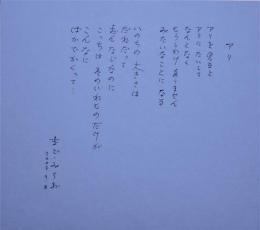 アリ
アリを見ると
アリにたいして
なんとなく
もうしわけ ありません
みたいなことに なる
いのちの 大きさは
だれだって
おんなじなのに
こっちは そのいれものだけが
こんなに
ばかでかくって…
まど・みちお